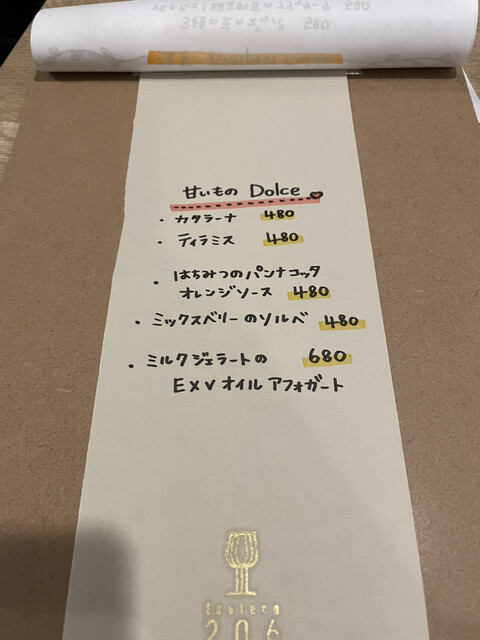 3種の豆のズッパ 580
甘いもの Dolce
・カタラーナ 480
・ティラミス 480
・はちみつのパンナコッタ
オレンジソース 480
・ミックスベリーのソルベ 480
・ミルクジェラートの 680
EXVオイル アフォガート
Eastern
206